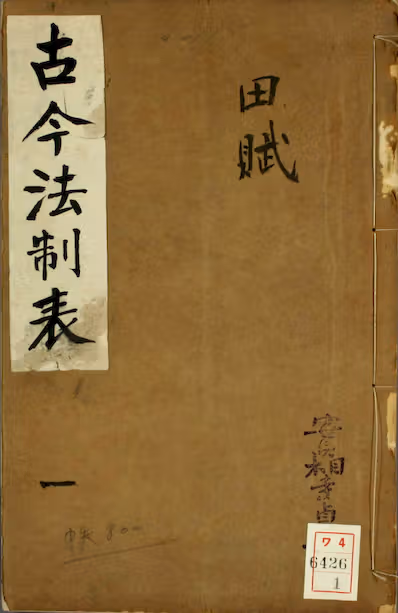 田賦
古今法制表
一
ワ 4
6426
1